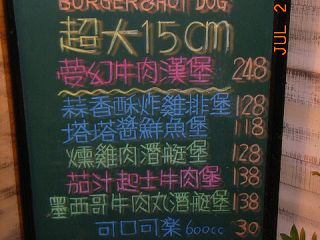 BURGER&HOT DOG
超大15cm
夢幻牛肉漢堡 248
蒜香酥炸雞排堡 128
塔塔醬鮮魚堡 118
燻雞肉潛艇堡 128
茄汁起士牛肉堡 138
墨西哥牛肉丸潛艇堡 138
可口可樂 600cc 30
JUL 2